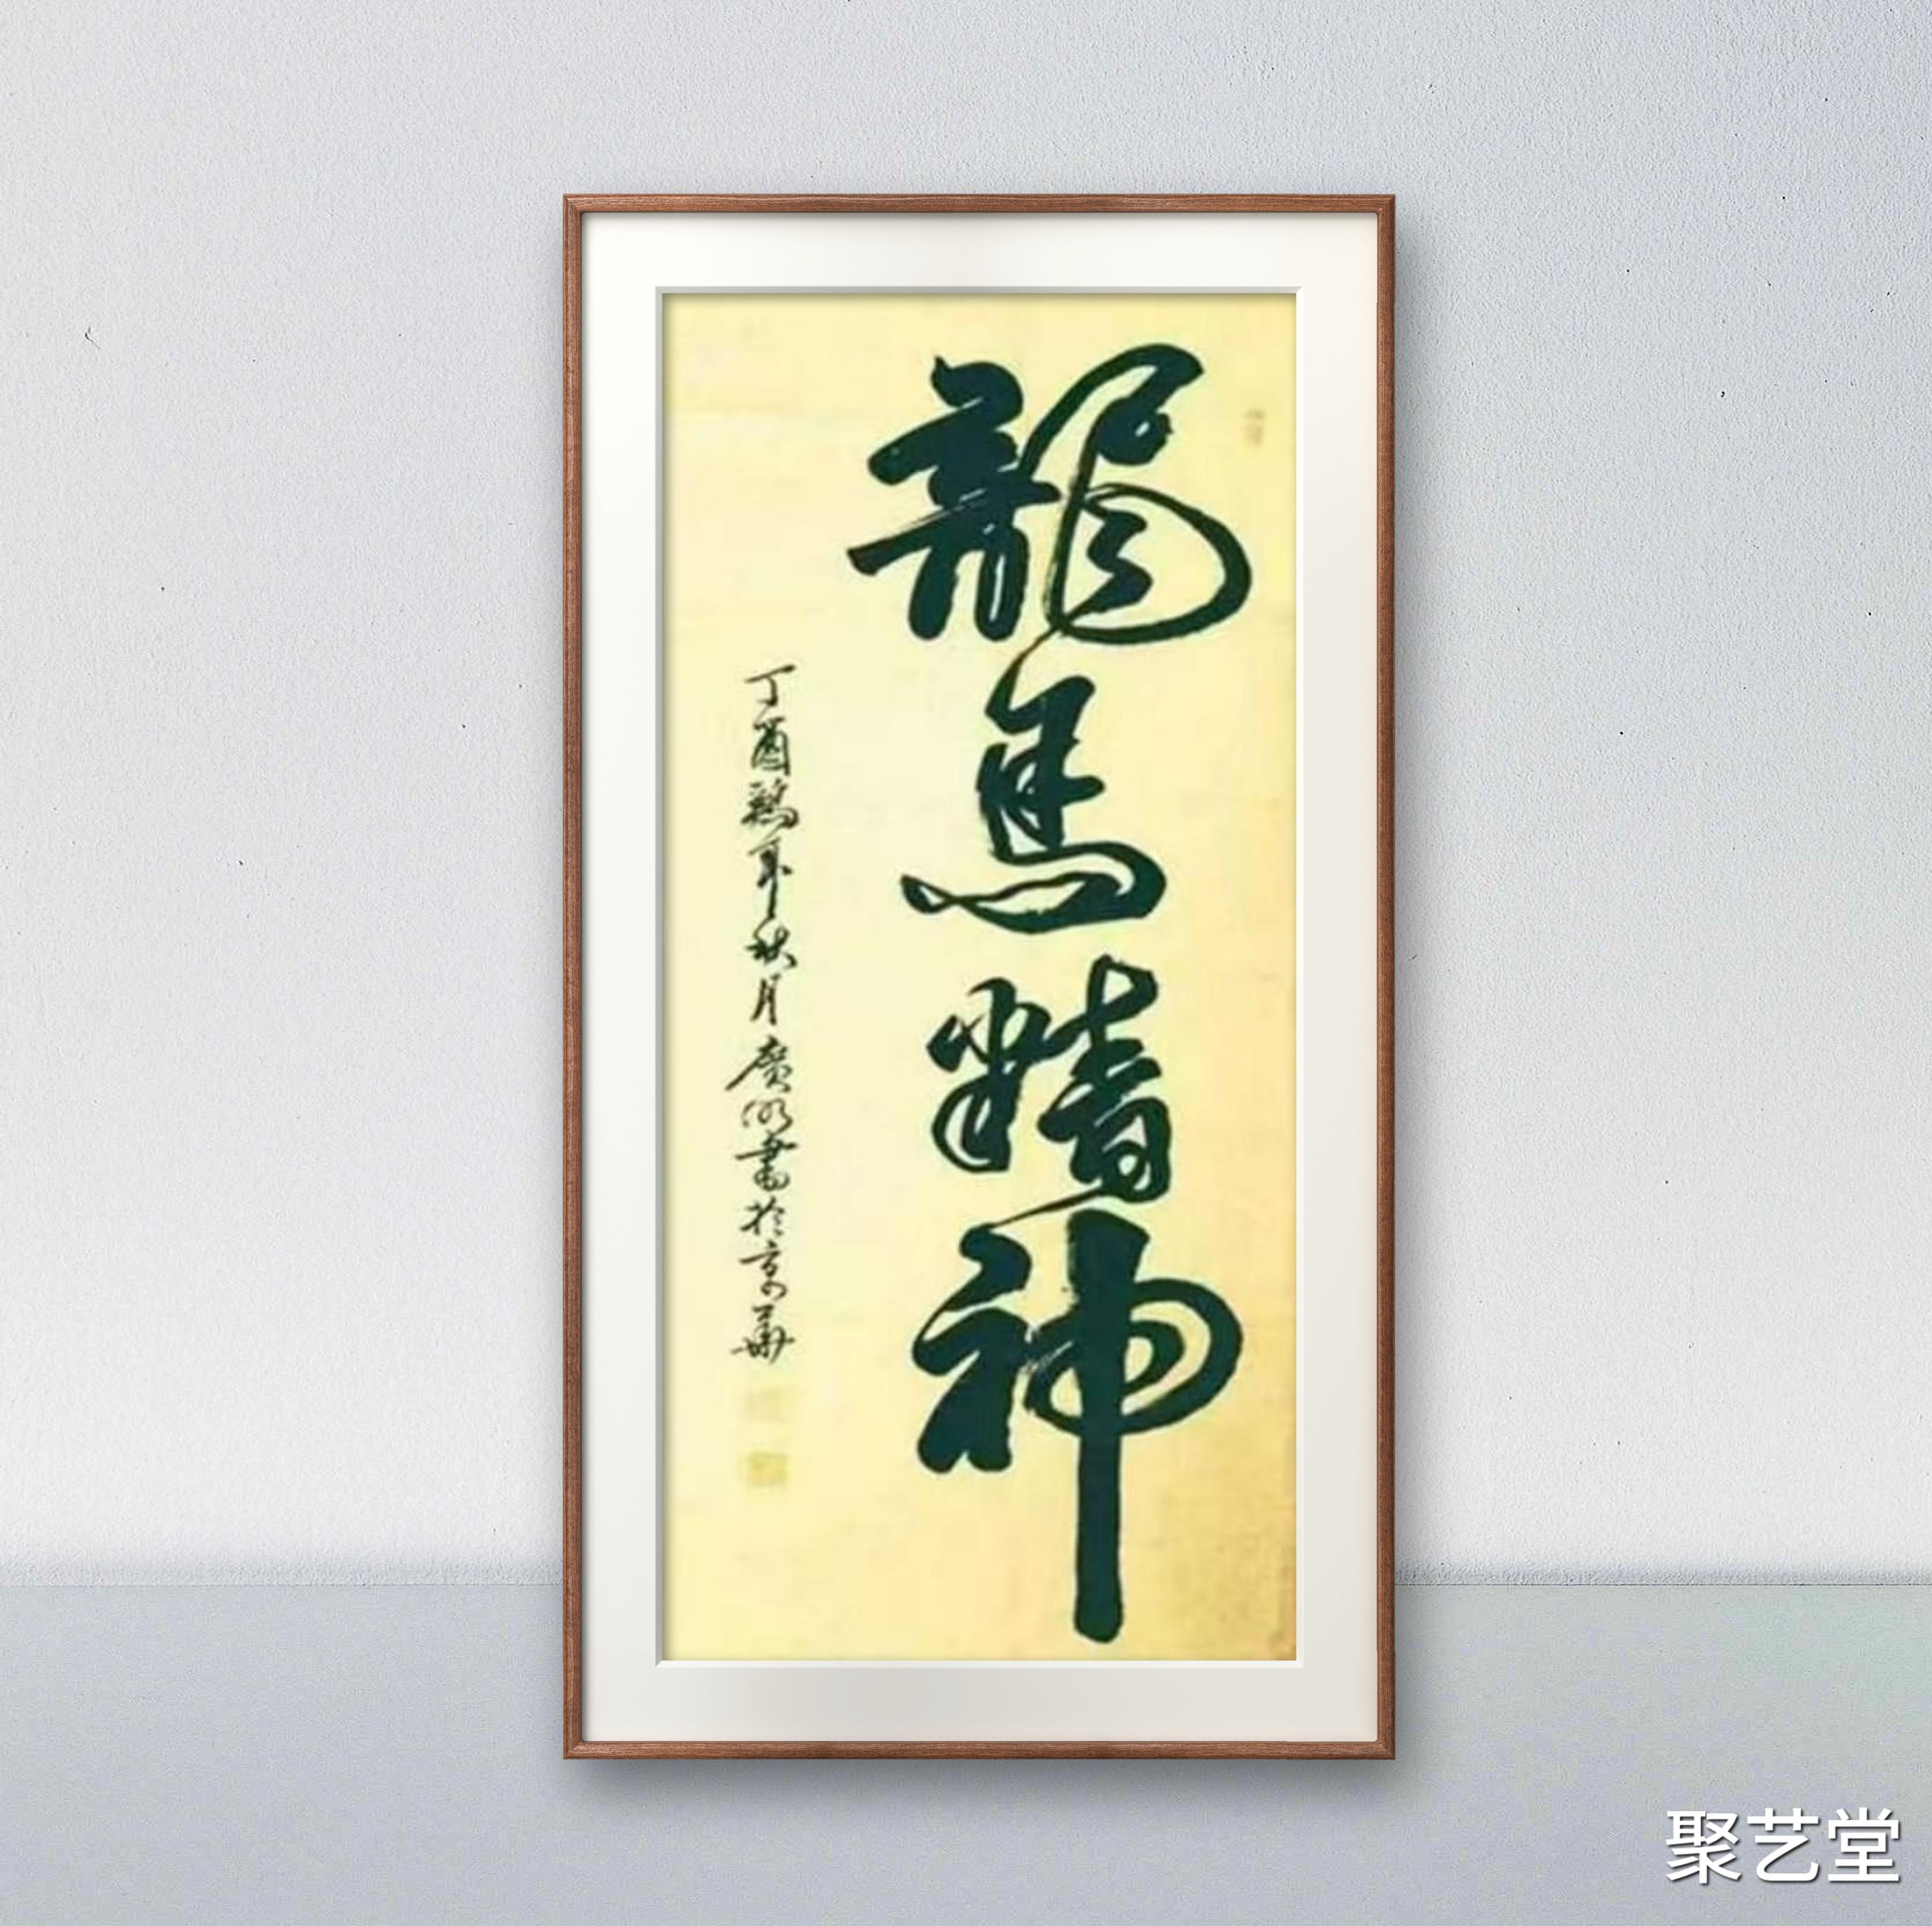 龍馬精神
丁酉鷄年秋月廣明書於京華
聚艺堂